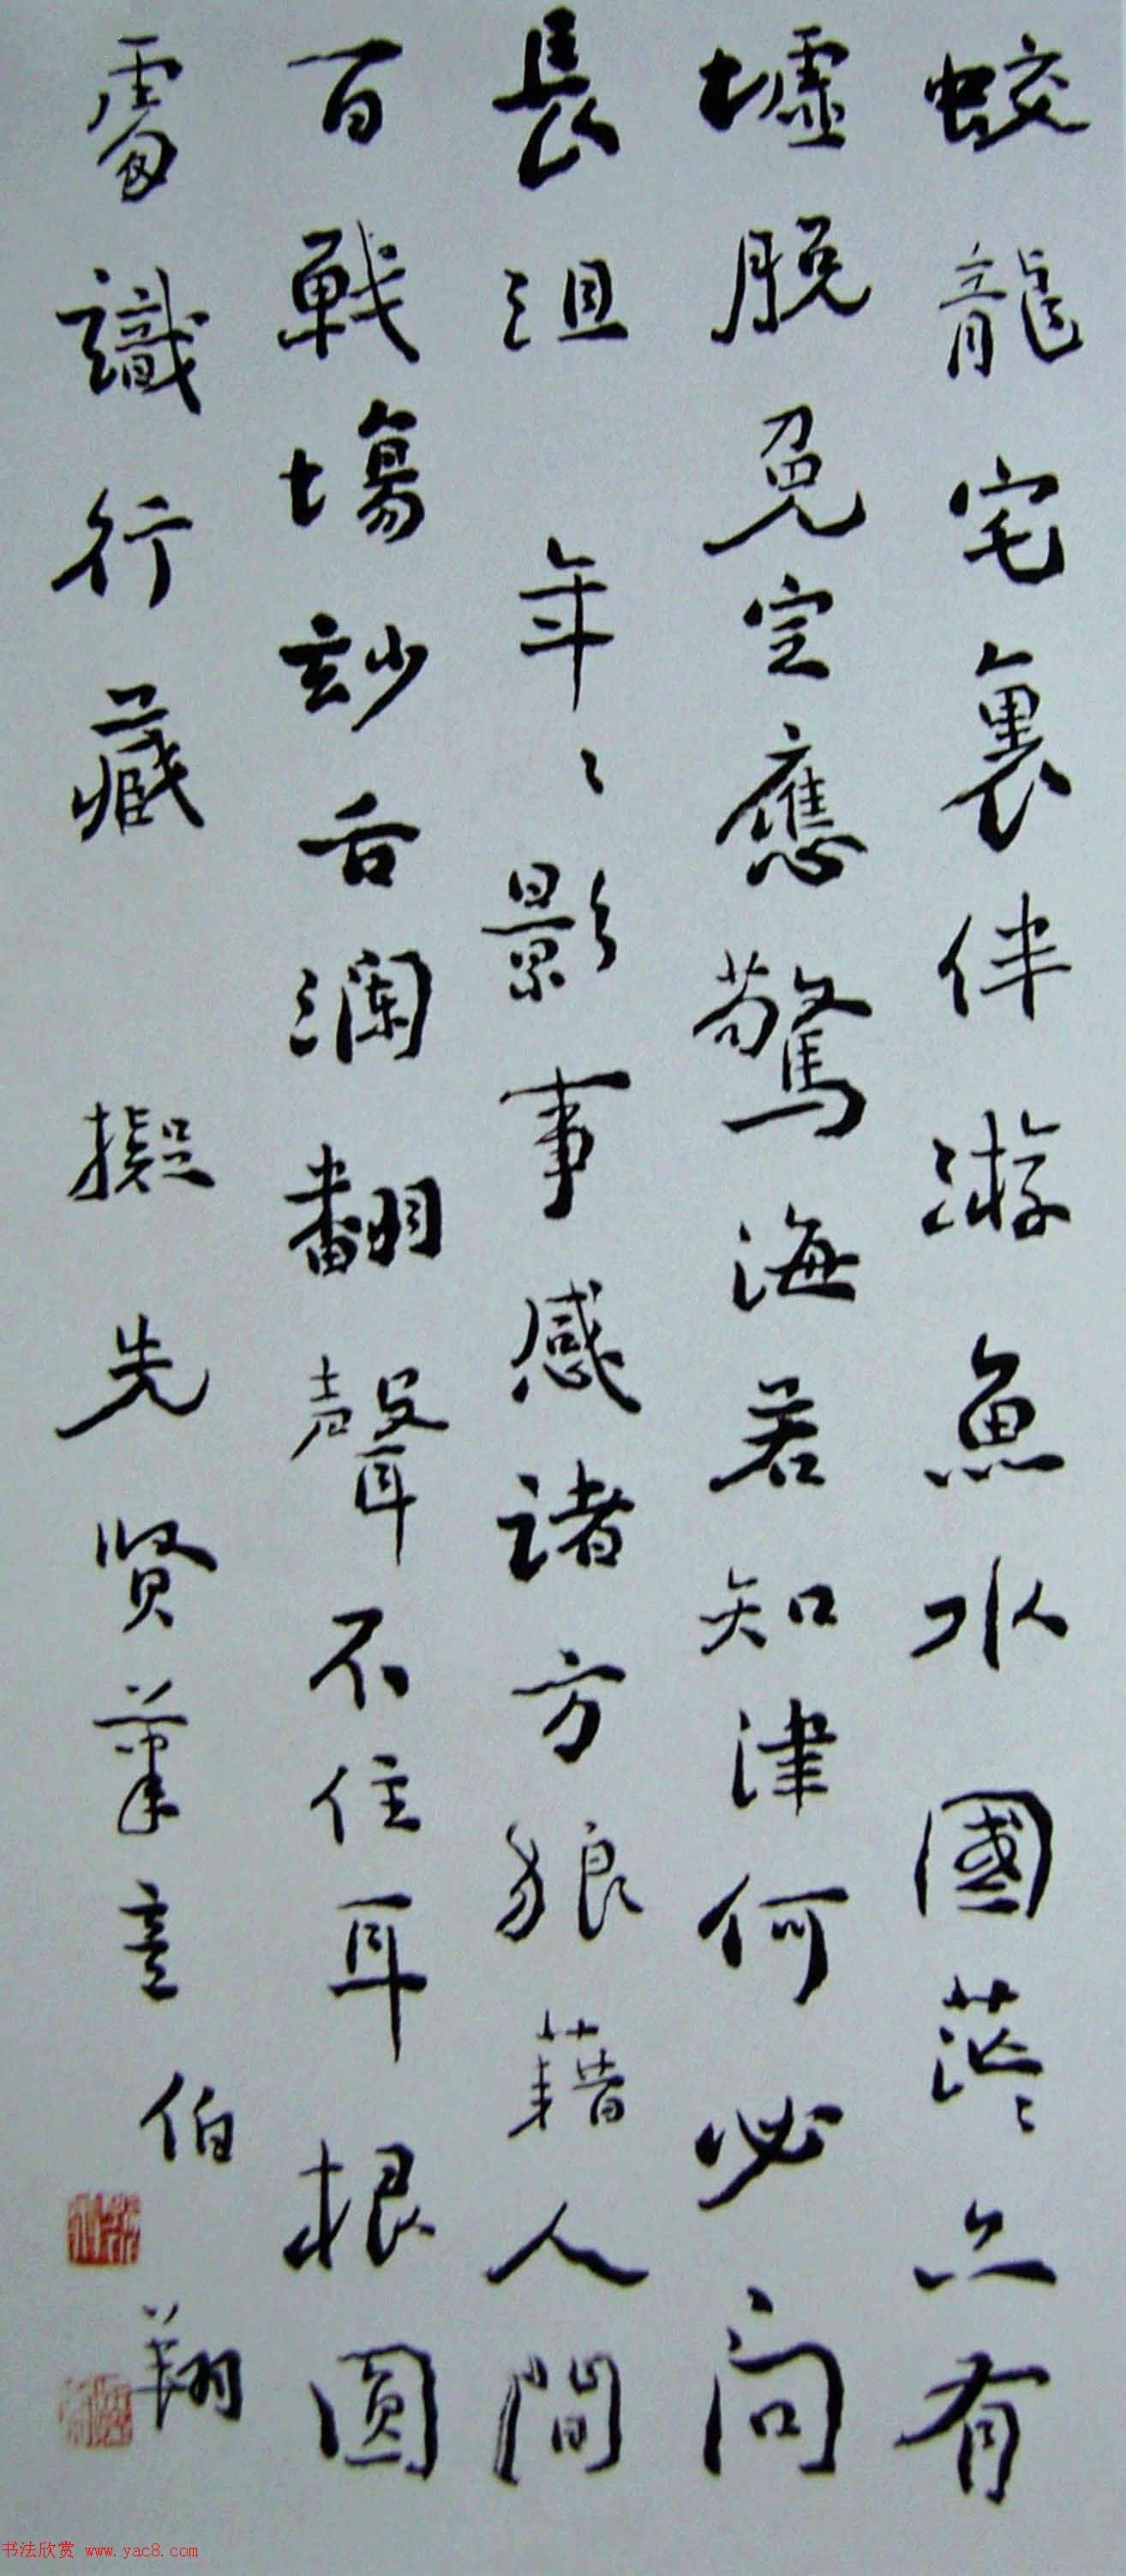 蛟龍宅裏伴游魚水國茫〻亦有
墟脫兔定應驚海若知津何必問
長沮年〻影事感諸方狼藉人間
百戰場妙舌瀾翻聲不住耳根圓
處識行藏擬先賢筆意
伯翔
书法欣赏 www.yac8.com